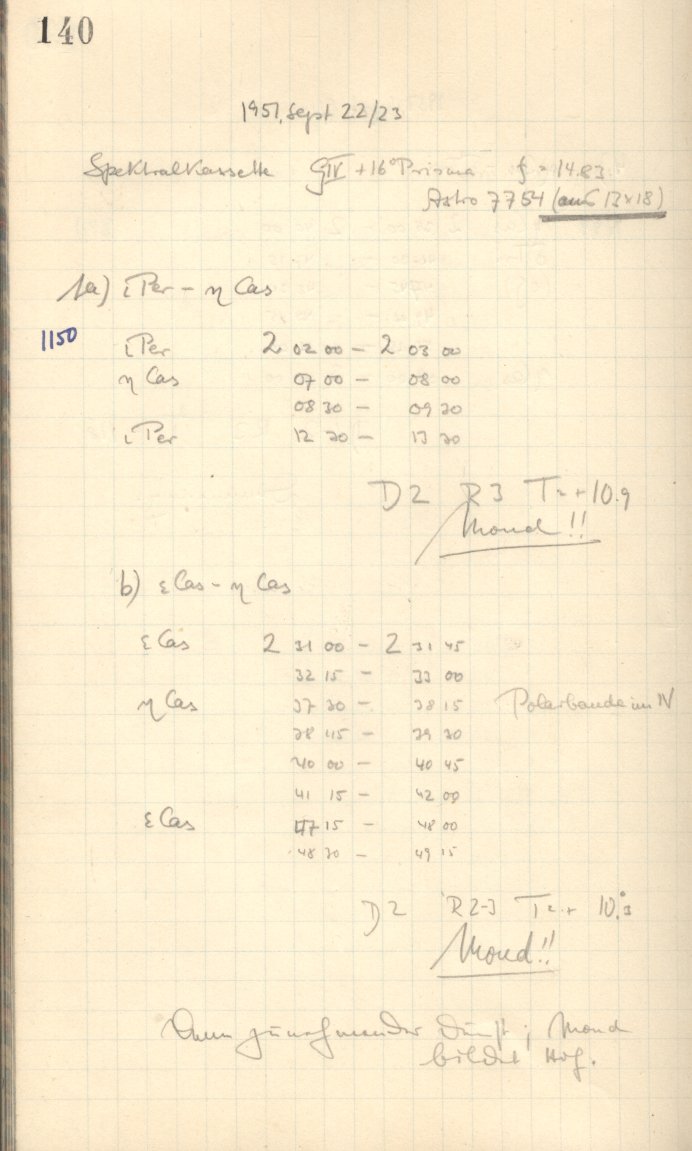 140
1951, Sept 22/23
Spektralkassette GIV + 16° Prisma f = 14.83
Astro 7754 (aus 13x18)
1a) ι Per - η Cas
1150
ι Per 2 02 00 - 2 03 00
η Cas 07 00 - 08 00
08 30 - 09 30
ι Per 12 30 - 13 30
D2 R3 T = +10.9
Mond!!
b) ε Cas - η Cas
ε Cas 2 31 00 - 2 31 45
32 15 - 33 00
η Cas 37 30 - 38 15 Polarbande im N
38 45 - 39 30
40 00 - 40 45
41 15 - 42 00
ε Cas 47 15 - 48 00
48 30 - 49 15
D2 R2-3 T = + 10.°3
Mond!!
Dann zunehmender Dunst; Mond
bildet Hof.